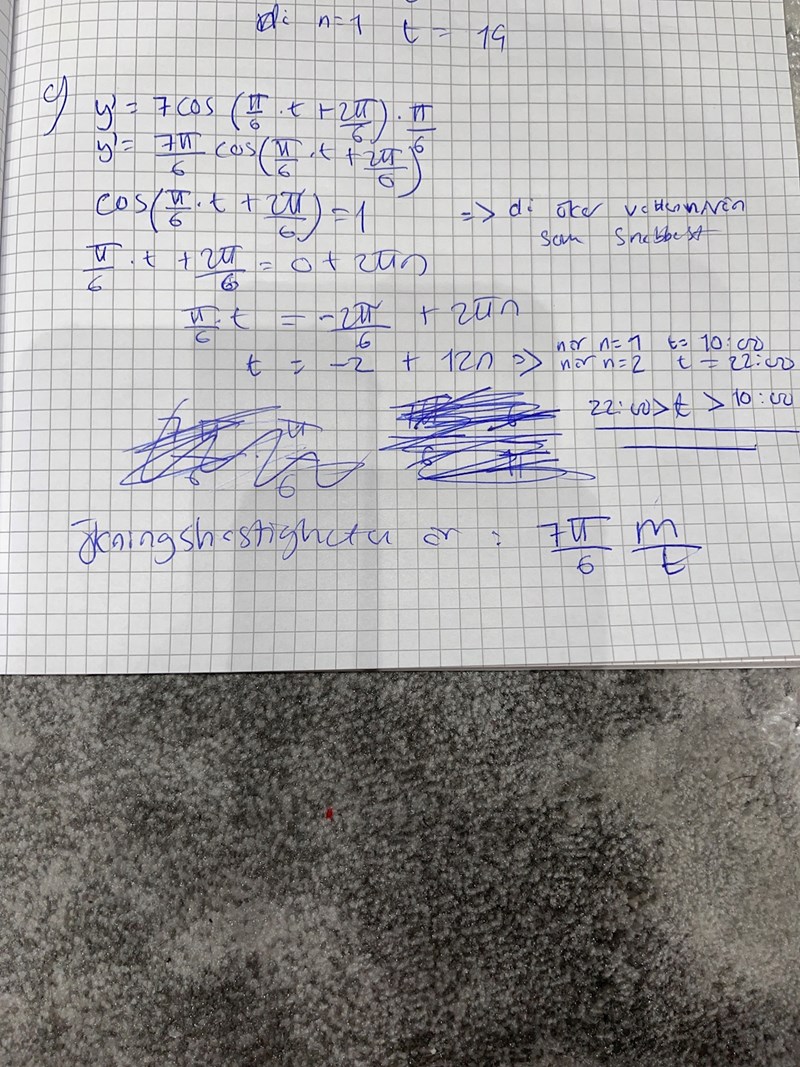 di n=1 t = 19
c) y' = 7cos (π/6 · t + 2π/6) · π/6
y' = 7π/6 cos(π/6 · t + 2π/6)
cos(π/6 · t + 2π/6) = 1 => di ökar vattennivån
som snabbast
π/6 · t + 2π/6 = 0 + 2πn
π/6 · t = -2π/6 + 2πn
t = -2 + 12n => när n=1 t= 10:00
när n=2 t = 22:00
22:00 > t > 10:00
Ökningshastigheten är : 7π/6 m/t